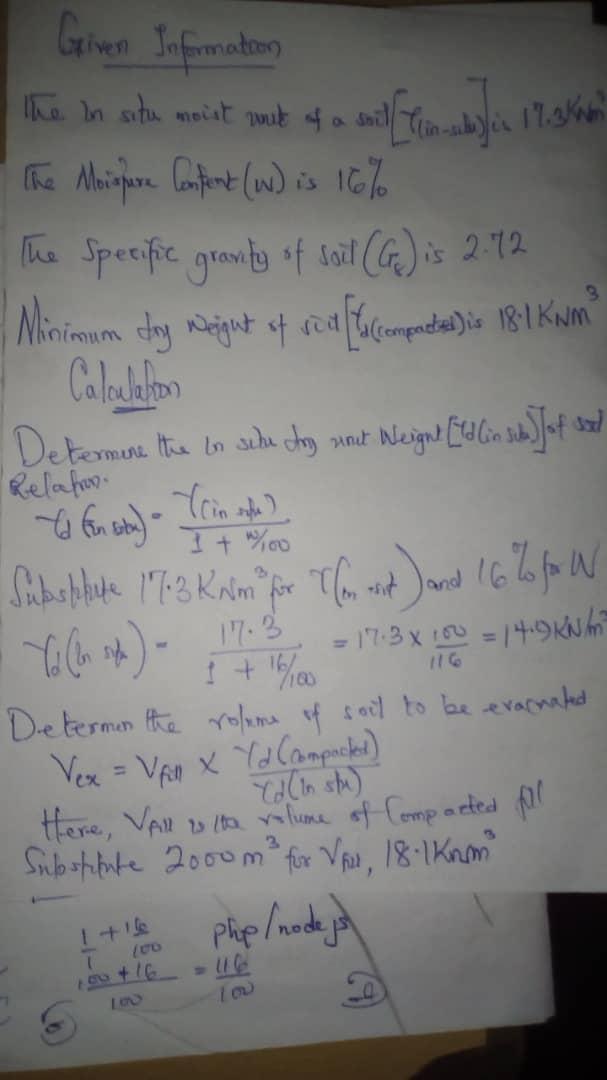 Given Information
The In situ moist unit of a soil [γ(in-situ)] is 17.3KN/m³
The Moisture Content (W) is 16%
The Specific gravity of soil (Gs) is 2.72
Minimum dry Weight of soil [γd(compacted) is 18.1 KNm³
Calculation
Determine the In situ dry unit Weight [γd(in situ)] of soil
Relation.
γd (in situ) = γ(in situ) / 1 + w/100
Substitute 17.3 KNm³ for γ(in situ) and 16% for W
γd(in situ) = 17.3 / 1 + 16/100 = 17.3 x 100/116 = 14.9KN/m³
Determin the volume of soil to be excavated
Vex = Vfill X γd(Compacted) / γd(In situ)
Here, Vfill is the volume of Compacted fill
Substitute 2000m³ for Vfill, 18.1Knm³
1/1 + 16/100 php/nodejs
100+16/100 = 116/100